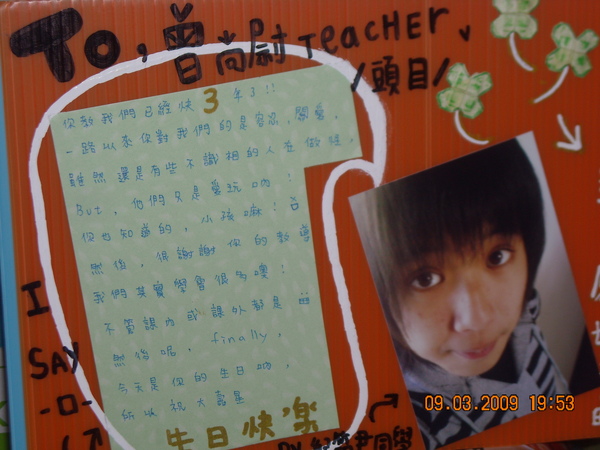 To, 曾尚尉 Teacher、
/頭目/
你教我們已經快 3 年了!!
一路以來你對我們的是容忍,關善,
雖然還是有些不識相的人在做怪,
But, 他們只是愛玩吶!
你也知道的,小孩嘛!
然後,很謝謝你的教導
我們其實學會很多噢!
不管課內或課外都是
然後呢, finally,
今天是你的生日吶,
所以祝大壽星
生日快樂
I
SAY
-O-
BY
同學
09.03.2009 19:53